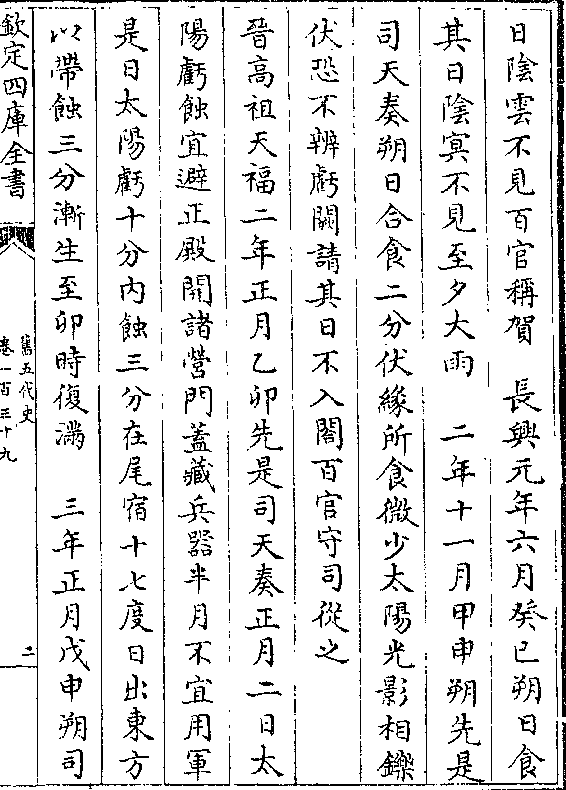 日陰雲不見百官稱賀　長興元年六月癸巳朔日食
其日陰冥不見至夕大雨　二年十一月甲申朔先是
司天奏朔日合食二分伏緣所食微少太陽光影相鑠
伏恐不辨虧闕請其日不入閤百官守司從之
晉高祖天福二年正月乙卯先是司天奏正月二日太
陽虧蝕宜避正殿開諸營門蓋藏兵器半月不宜用軍
是日太陽虧十分內蝕三分在尾宿十七度日出東方
以帶蝕三分漸生至卯時復滿　三年正月戊申朔司
欽定四庫全書
舊五代史
卷一百三十九
二